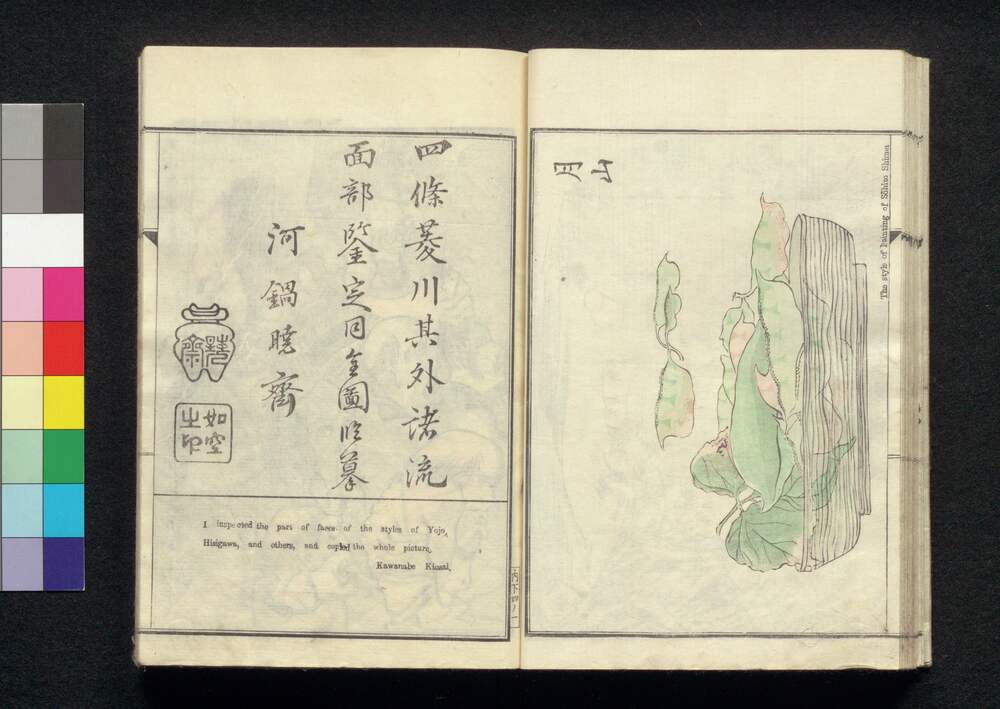 The style of Painting of Shiuo Shimei
山
月
四條菱川其外諸流
面部鑒定同全圖臨摹
河鍋曉齋
如空
之印
I inspected the part of faces of the styles of Yojo,
Hisigawa, and others, and copied the whole picture.
Kawanabe Kiosai.